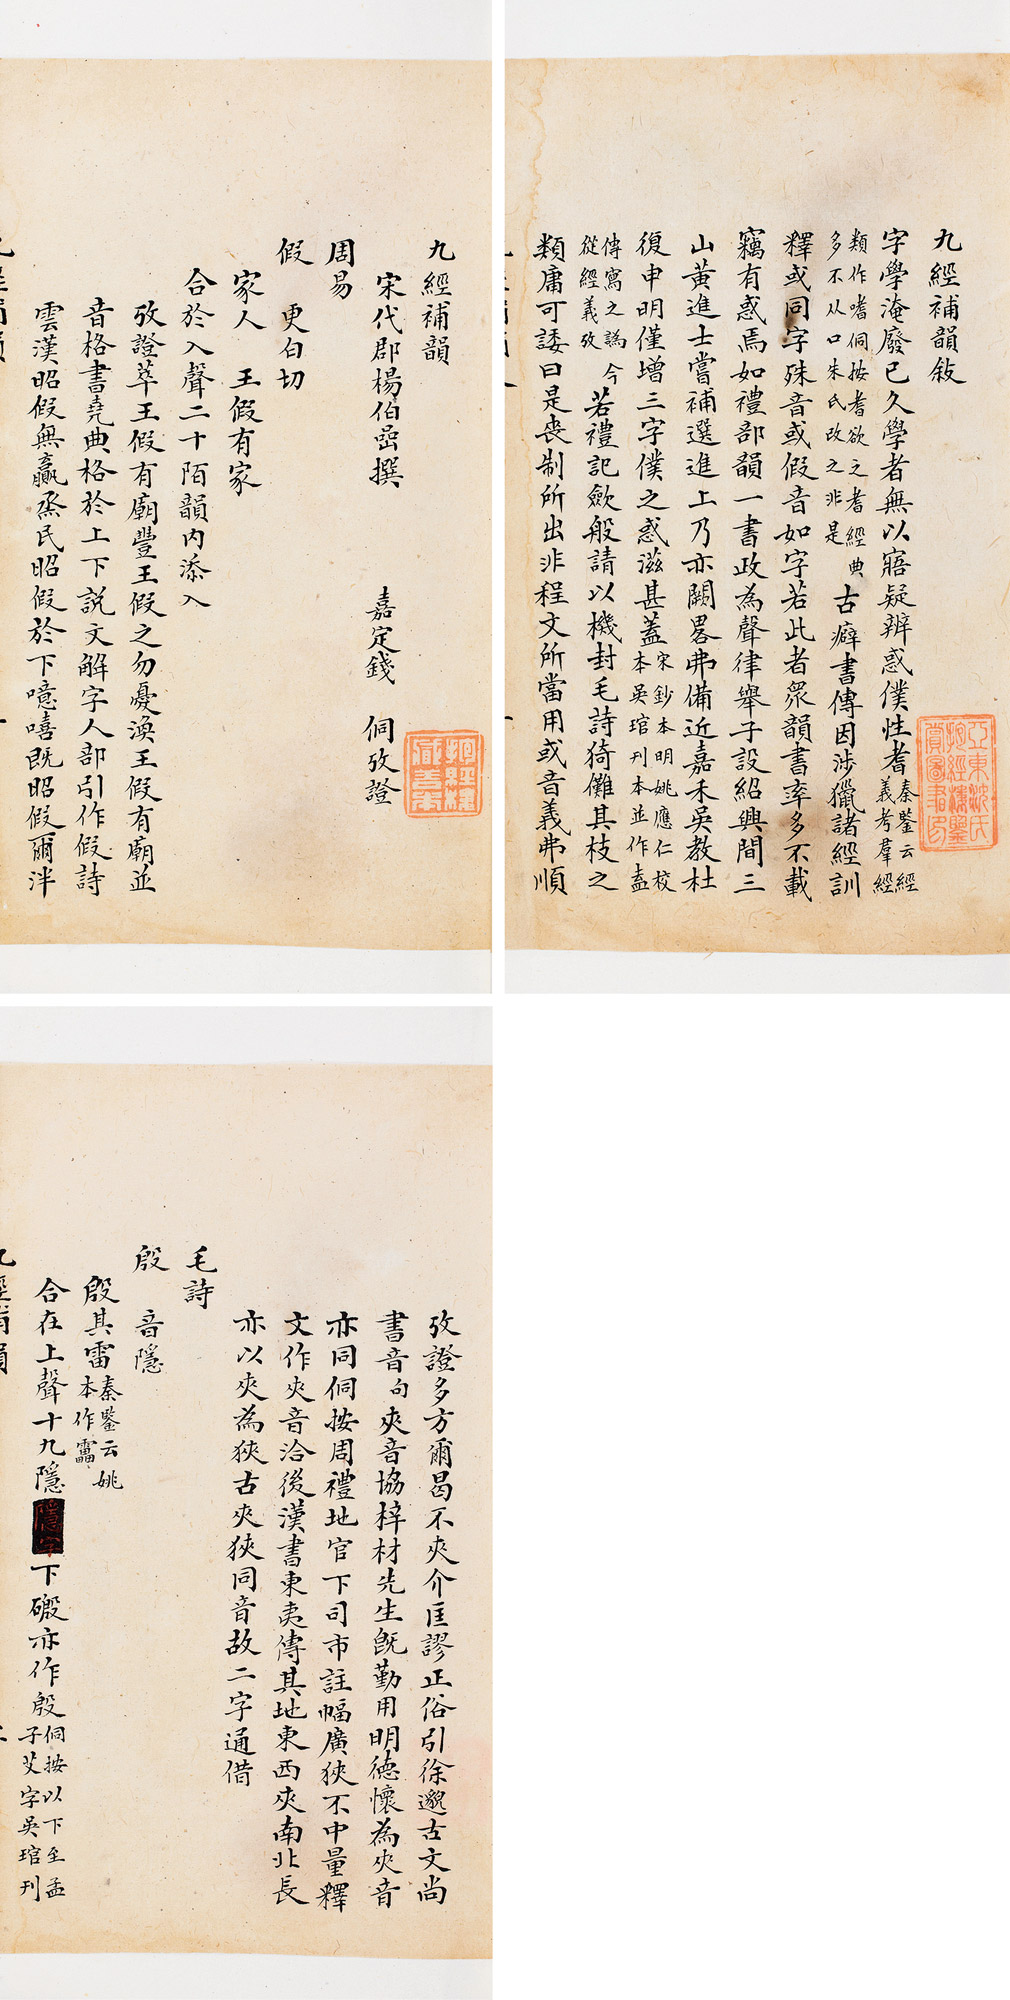 九經補韻敘
字學淹廢已久學者無以寤疑辨惑僕性耆秦鑒云經義考羣經
類作嗜侗按耆欲之耆經典多不从口朱氏改之非是古癖書傳因涉獵諸經訓
釋或同字殊音或假音如字若此者眾韻書率多不載
竊有惑焉如禮部韻一書政為聲律舉子設紹興間三
山黃進士嘗補選進上乃亦闕畧弗備近嘉禾吳教杜
復申明僅增三字僕之惑滋甚蓋宋鈔本明姚應仁校本吳琯刊本並作盍
傳寫之譌今從經義攷若禮記歛般請以機封毛詩猗儺其枝之
類庸可諉曰是喪制所出非程文所當用或音義弗順
亞東沈氏抱經樓鑒賞圖書印
九經補韻
宋代郡楊伯嵒撰 嘉定錢 侗攷證
抱經樓藏善本
周易
假 更白切
家人 王假有家
合於入聲二十陌韻內添入
攷證萃王假有廟豐王假之勿憂渙王假有廟並
音格書堯典格於上下説文解字人部引作假詩
雲漢昭假無贏烝民昭假於下噫嘻既昭假爾泮
攷證多方爾曷不夾介匡謬正俗引徐邈古文尚
書音句夾音協梓材先生既勤用明德懷為夾音
亦同侗按周禮地官下司市註幅廣狹不中量釋
文作夾音洽後漢書東夷傳其地東西夾南北長
亦以夾為狹古夾狹同音故二字通借
毛詩
殷 音隱
殷其雷秦鑒云姚本作靁
合在上聲十九隱隱字下磤亦作殷侗按以下至孟子艾字吳琯刊